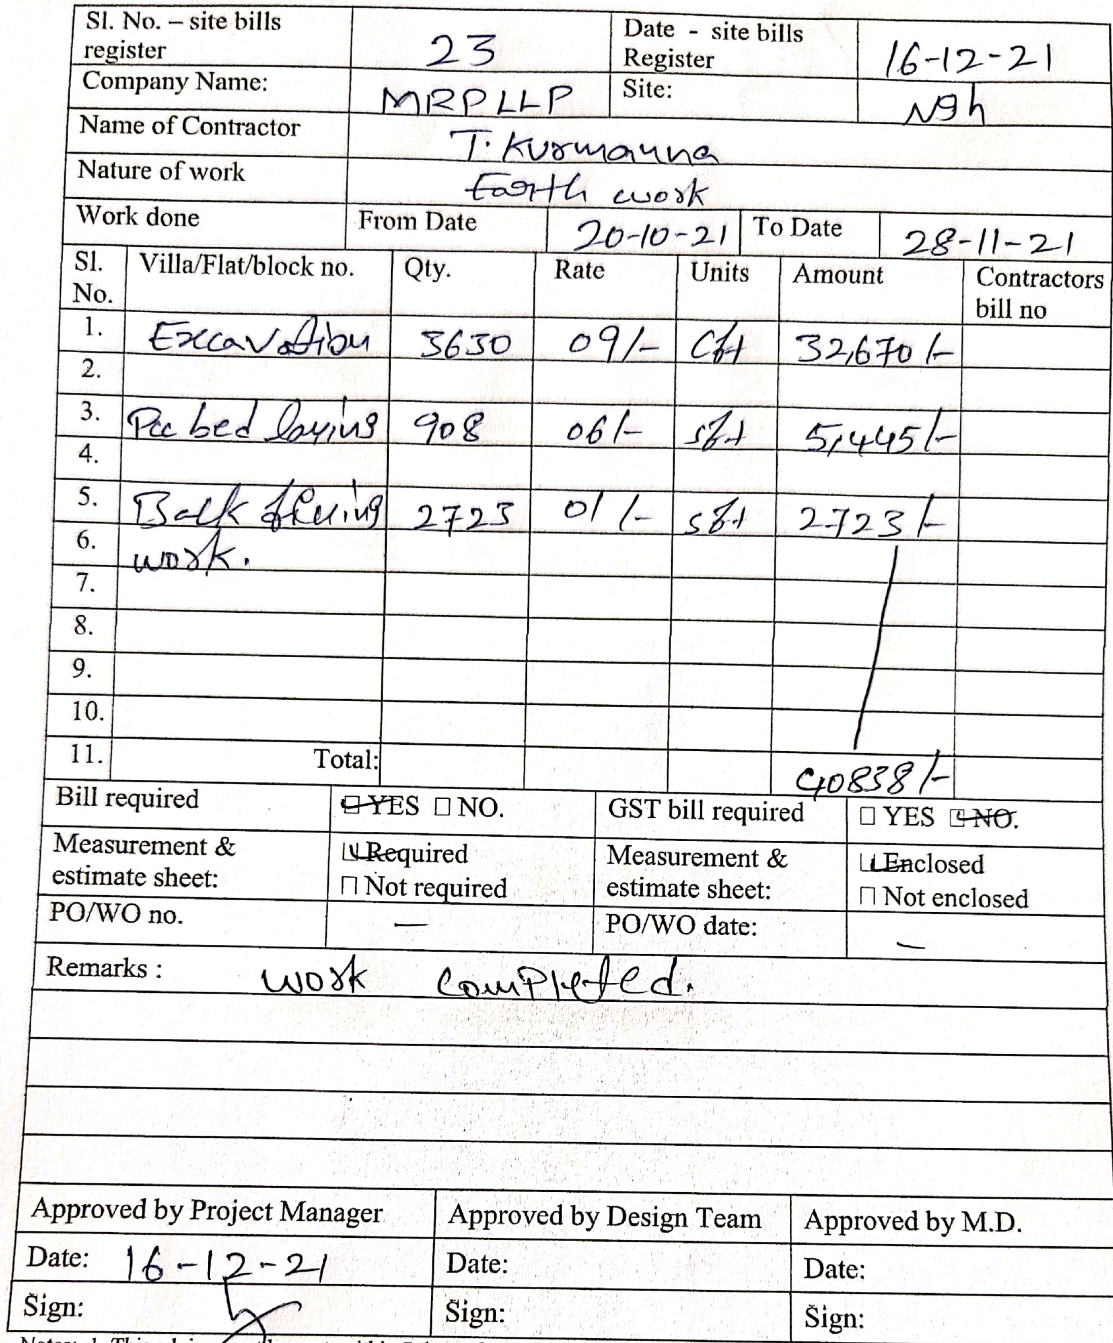 Sl. No. – site bills register 23 Date - site bills Register 16-12-21
Company Name: MRPLLP Site: Ngh
Name of Contractor T. Kurmanna
Nature of work Earth work
Work done From Date 20-10-21 To Date 28-11-21
Sl. No. Villa/Flat/block no. Qty. Rate Units Amount Contractors bill no
1. Excavation 3630 09/- Cft 32,670/-
2.
3. Pcc bed laying 908 06/- sft 5,445/-
4.
5. Back filling 2723 01/- sft 2723/-
6. work.
7.
8.
9.
10.
11. Total: 40838/-
Bill required ☐ YES ☐ NO. GST bill required ☐ YES ☐ NO.
Measurement & estimate sheet: ☐ Required ☐ Not required Measurement & estimate sheet: ☐ Enclosed ☐ Not enclosed
PO/WO no. — PO/WO date: —
Remarks : work completed.
Approved by Project Manager Approved by Design Team Approved by M.D.
Date: 16-12-21 Date: Date:
Sign: Sign: Sign: